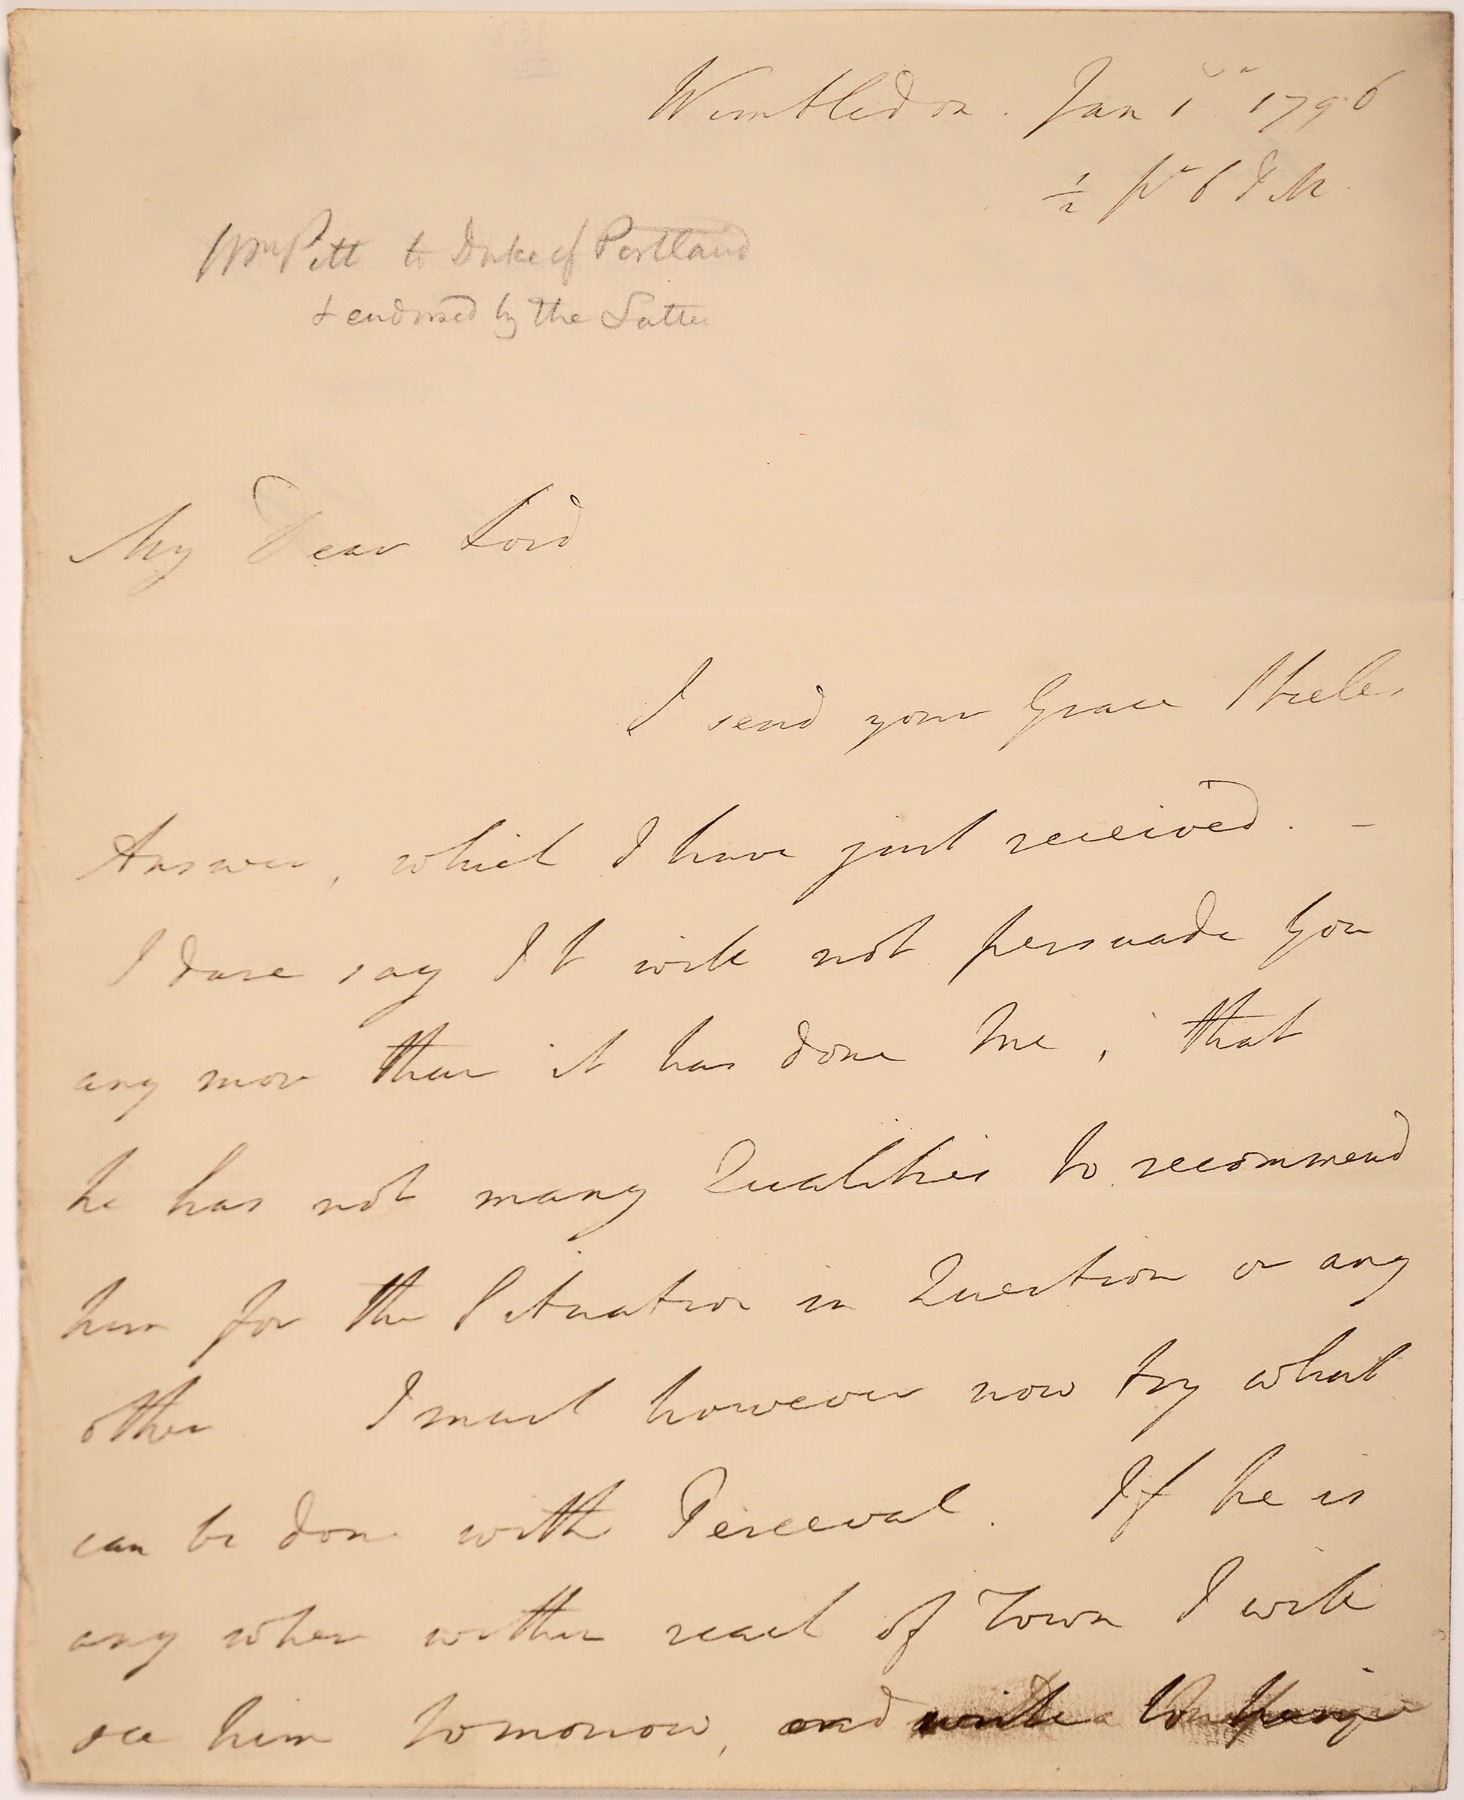 Wimbledon. Jan 1st 1796
1/2 pt 6 P M.
Wm Pitt to Duke of Portland
& endorsed by the Latter
My Dear Lord
I send your Grace Steele's
Answer, which I have just received. –
I dare say It will not persuade You
any more than it has done Me, that
he has not many Qualities to recommend
him for the Situation in Question or any
other I must however now try what
can be done with Perceval. If he is
any where within reach of Town I will
see him tomorrow, and write to